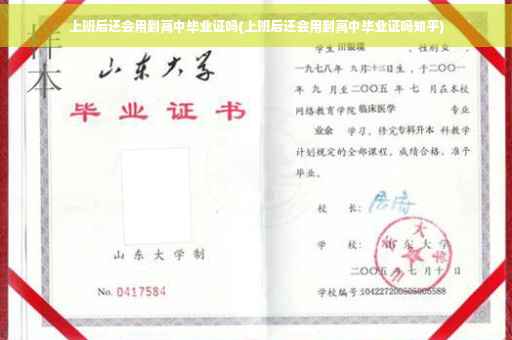 上班后还会用到高中毕业证吗(上班后还会用到高中毕业证吗知乎)
样本
山东大学
毕业证书
山东大学制
No. 0417584
学生
性别女，
一九七八年 九月十三日生，于二〇〇一
年 九 月至二〇〇五 年 七 月在本校
网络教育学院 临床医学 专业
业余 学习，修完专科升本 科教学
计划规定的全部课程，成绩合格，准予
毕业。
校 长：
学 校：山东大学
二〇〇五年 七 月十 日
学校编号：